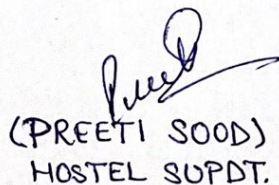 (PREETI SOOD)
HOSTEL SUPDT.